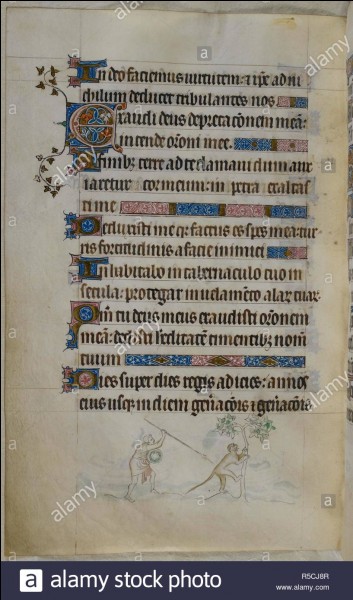 In deo faciemus virtutem: & ip̄e ad ni
chilum deducet tribulantes nos
Exaudi deus dep̄catōnem meā:
intende orōni mee.
A finibz terre ad te clamaui dum anx
iaretur cor meum: in petra exaltas
ti me
Deduxisti me qr factus es spes mea: tur
ris fortitudinis a facie inimici
Inhabitabo in tabernaculo tuo in
secula: protegar in uelamēto alar tuar.
Qm̄ tu deus meus exaudisti orōnem
meā: dedisti hereditatē timentibz nom̄
tuum
Dies super dies regis adicies: annos
eius usqz in diem gen̄acōis & gen̄acōis
alamy stock photo
R5CJ8R
www.alamy.com